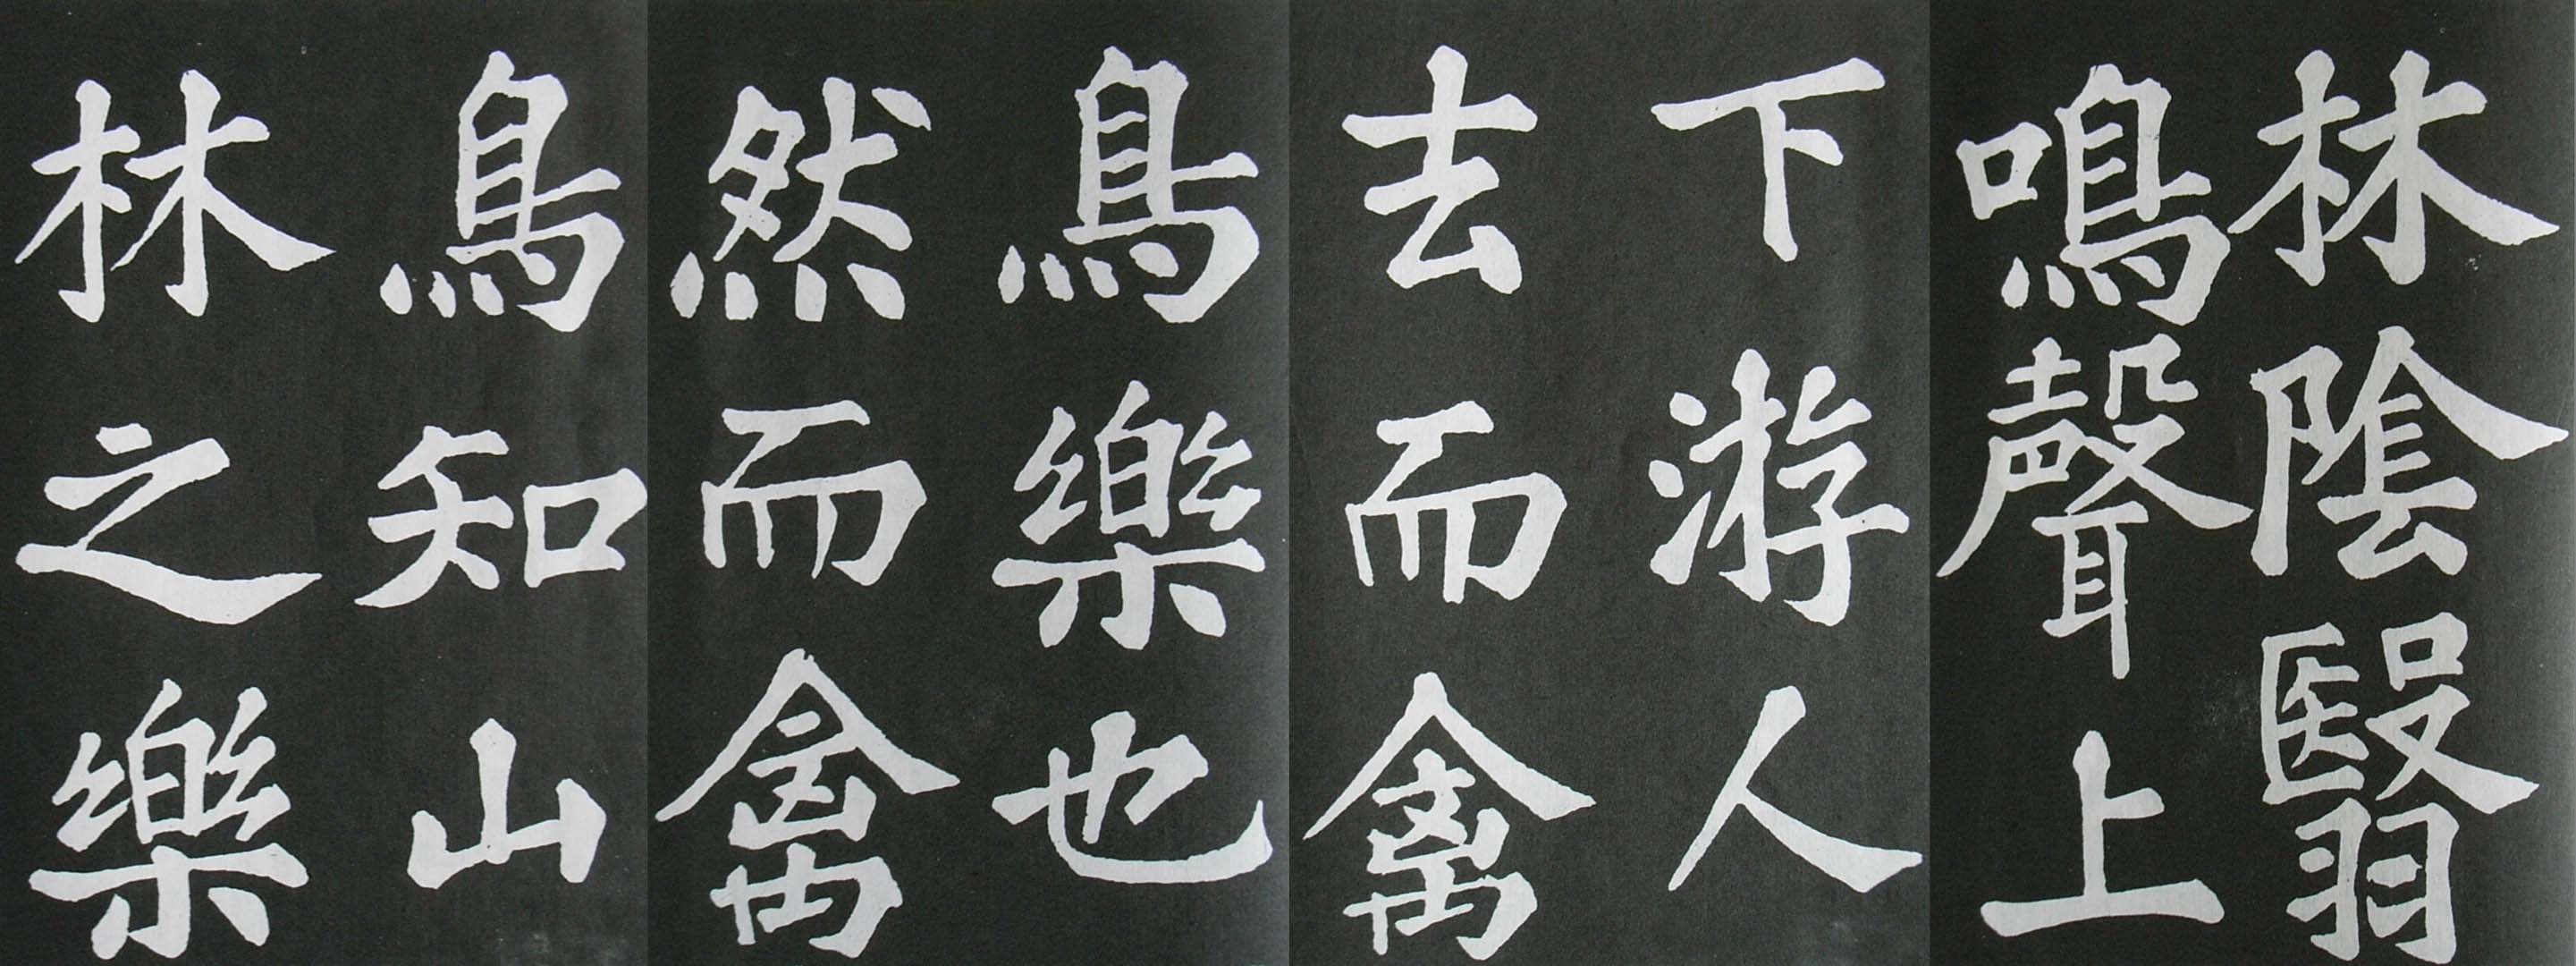 林陰翳
鳴聲上
下游人
去而禽
鳥樂也
然而禽
鳥知山
林之樂